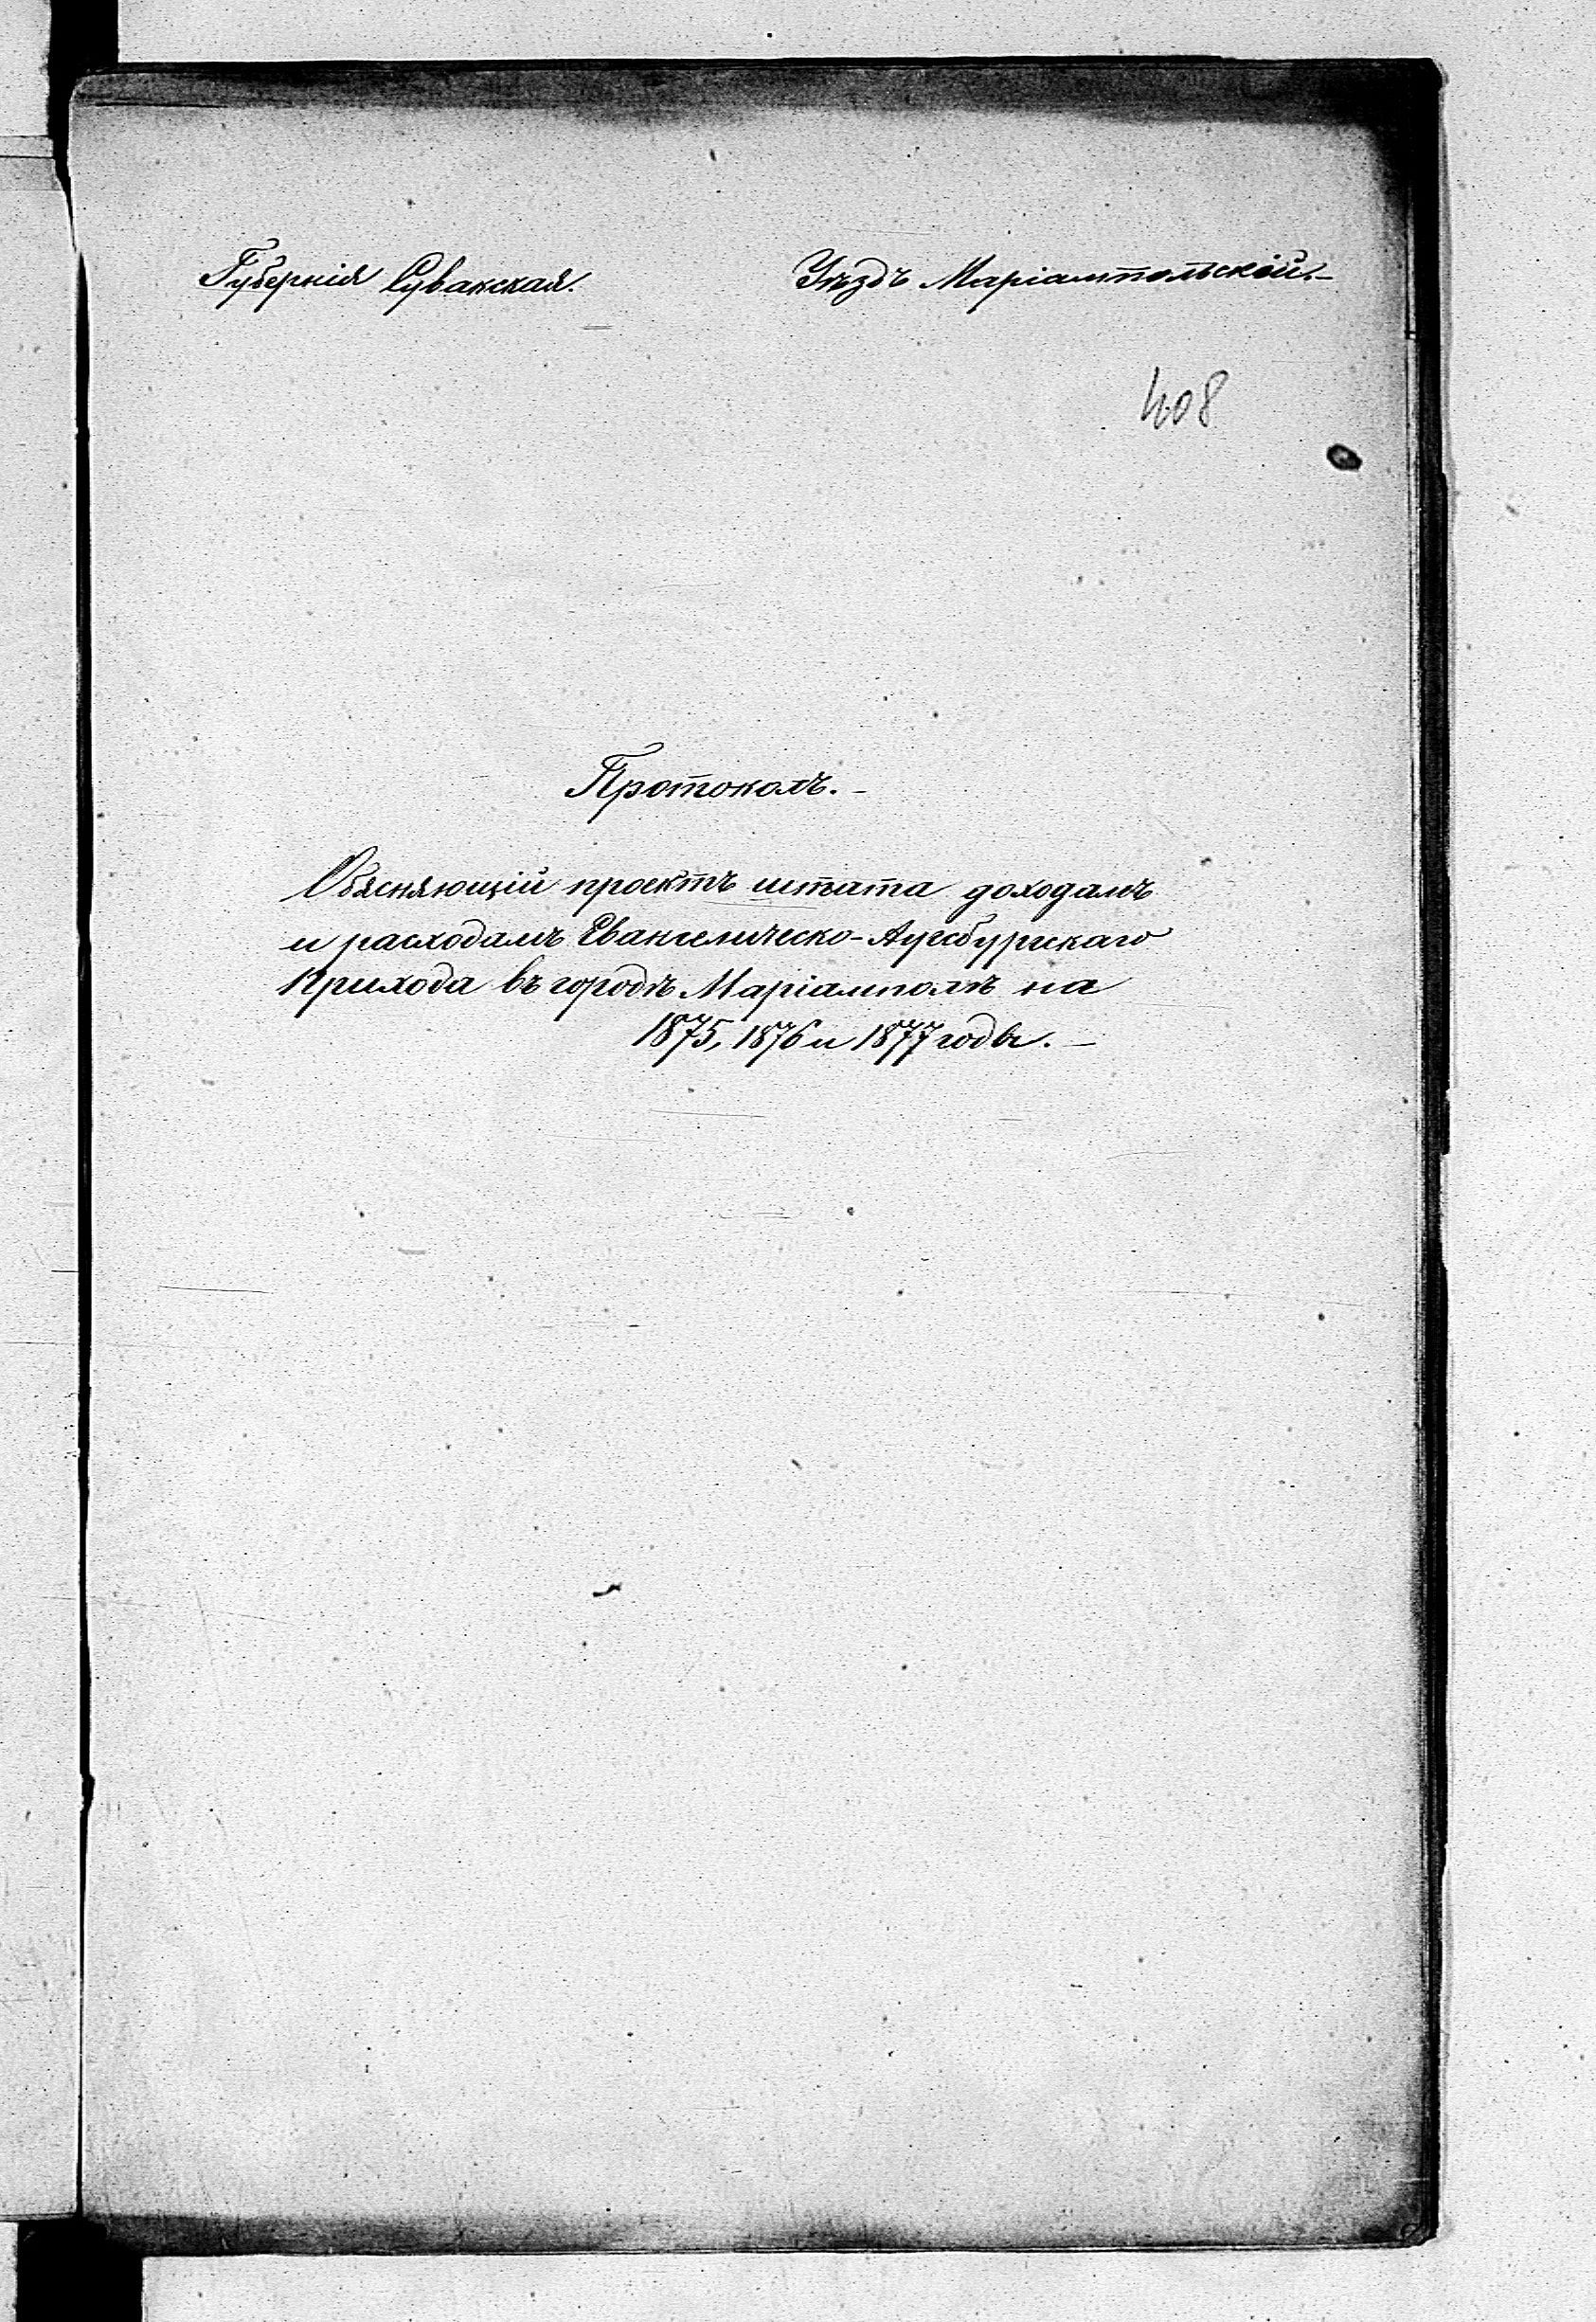 Губернія Сувакская. Уѣздъ Маріампольскій.–
408
Протоколъ.–
Объясняющій проектъ штата доходамъ
и расходамъ Евангелическо-Аугсбургскаго
Прихода въ городѣ Маріамполѣ на
1875, 1876 и 1877 годы.–